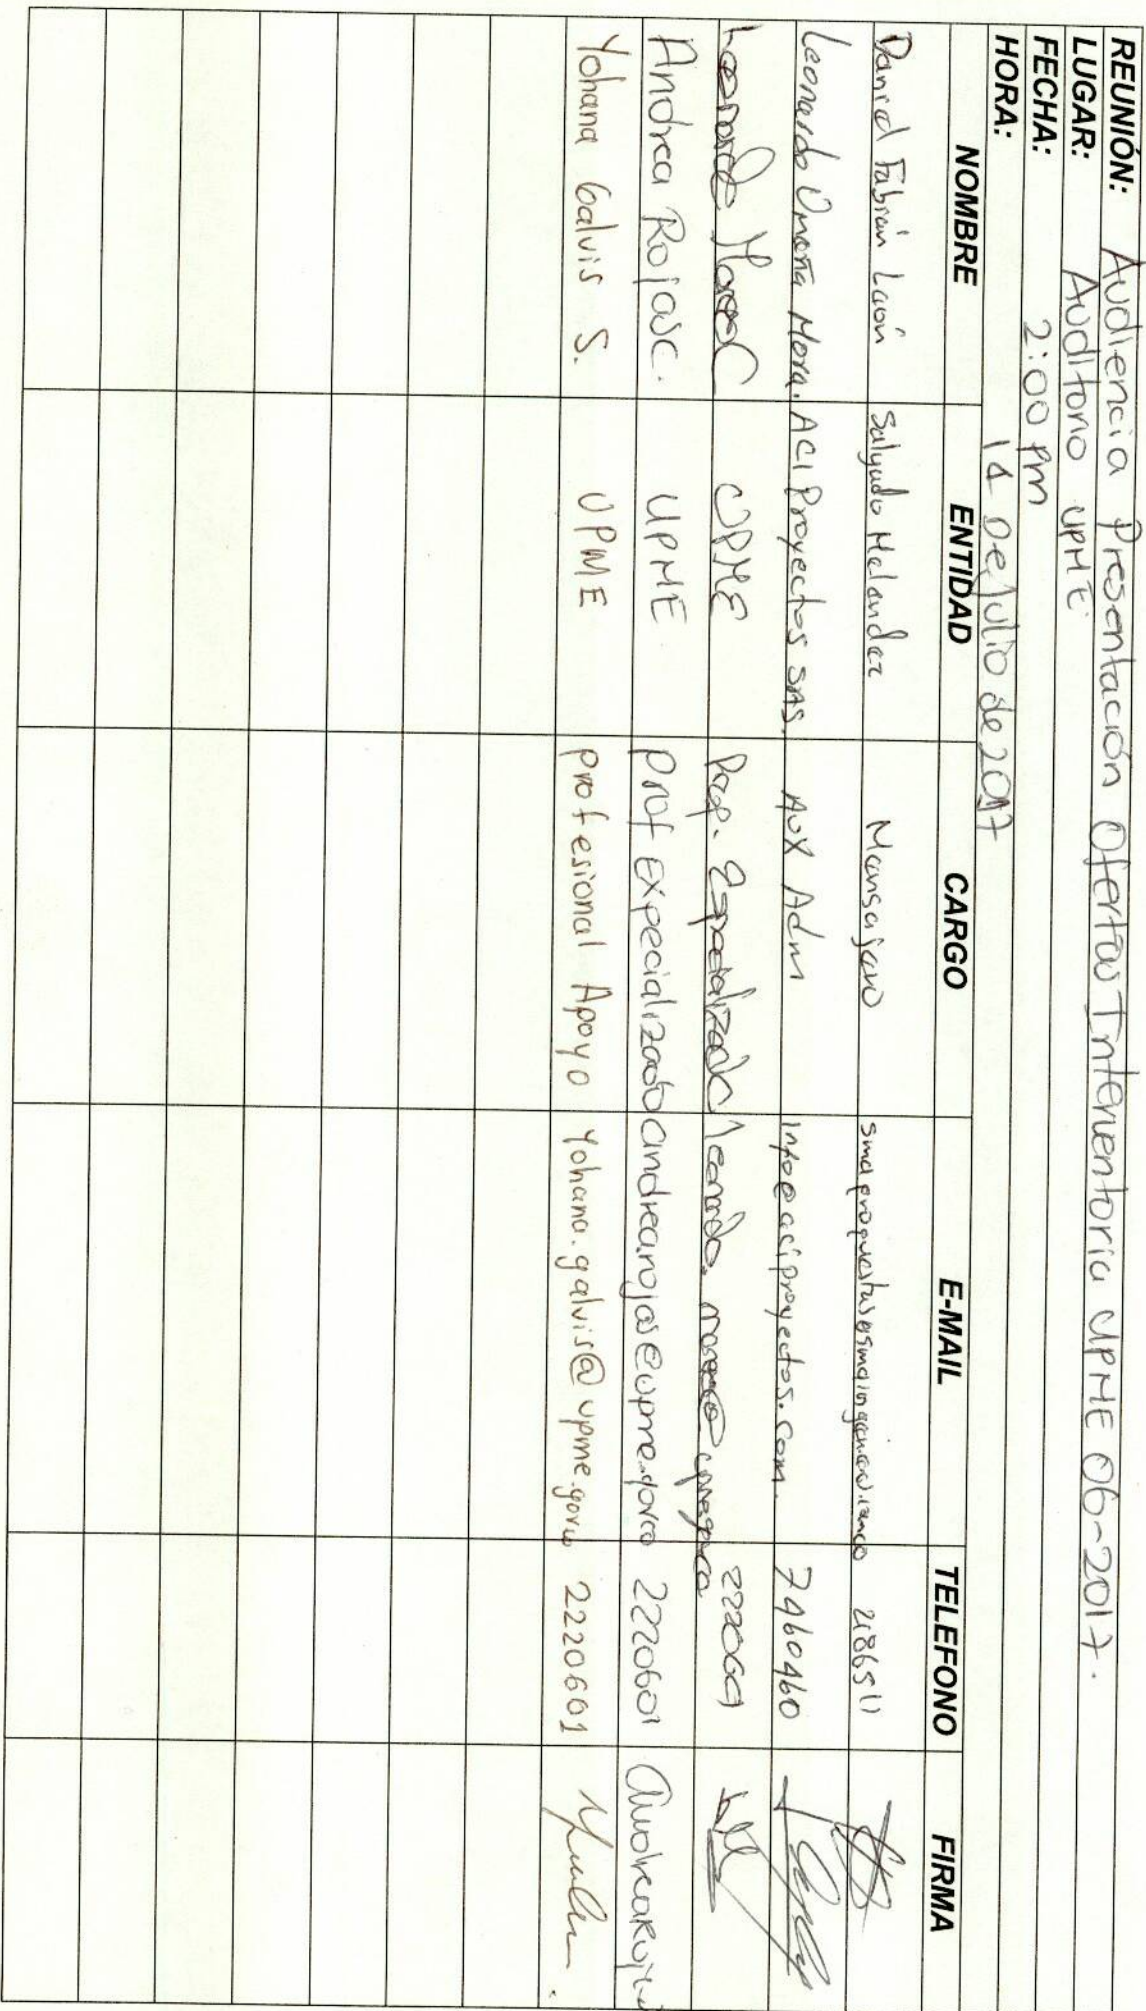 REUNIÓN: Audiencia Presentación Ofertas Interventoria UPME 06-2017.
LUGAR: Auditorio UPME
FECHA: 2:00 pm
HORA: 14 De Julio de 2017
NOMBRE ENTIDAD CARGO E-MAIL TELEFONO FIRMA
Daniel Fabián León Salgado Melendez Mensajero
Leonardo Umaña Mora. ACI Proyectos SAS. Aux Adm info@aciproyectos.com. 7460460
Leonardo UPME Prof. Especializado 2220601
Andrea Rojas C. UPME Prof Especializado andrea.rojas@upme.gov.co 2220601
Yohana Galvis S. UPME profesional Apoyo Yohana.galvis@upme.gov.co 2220601